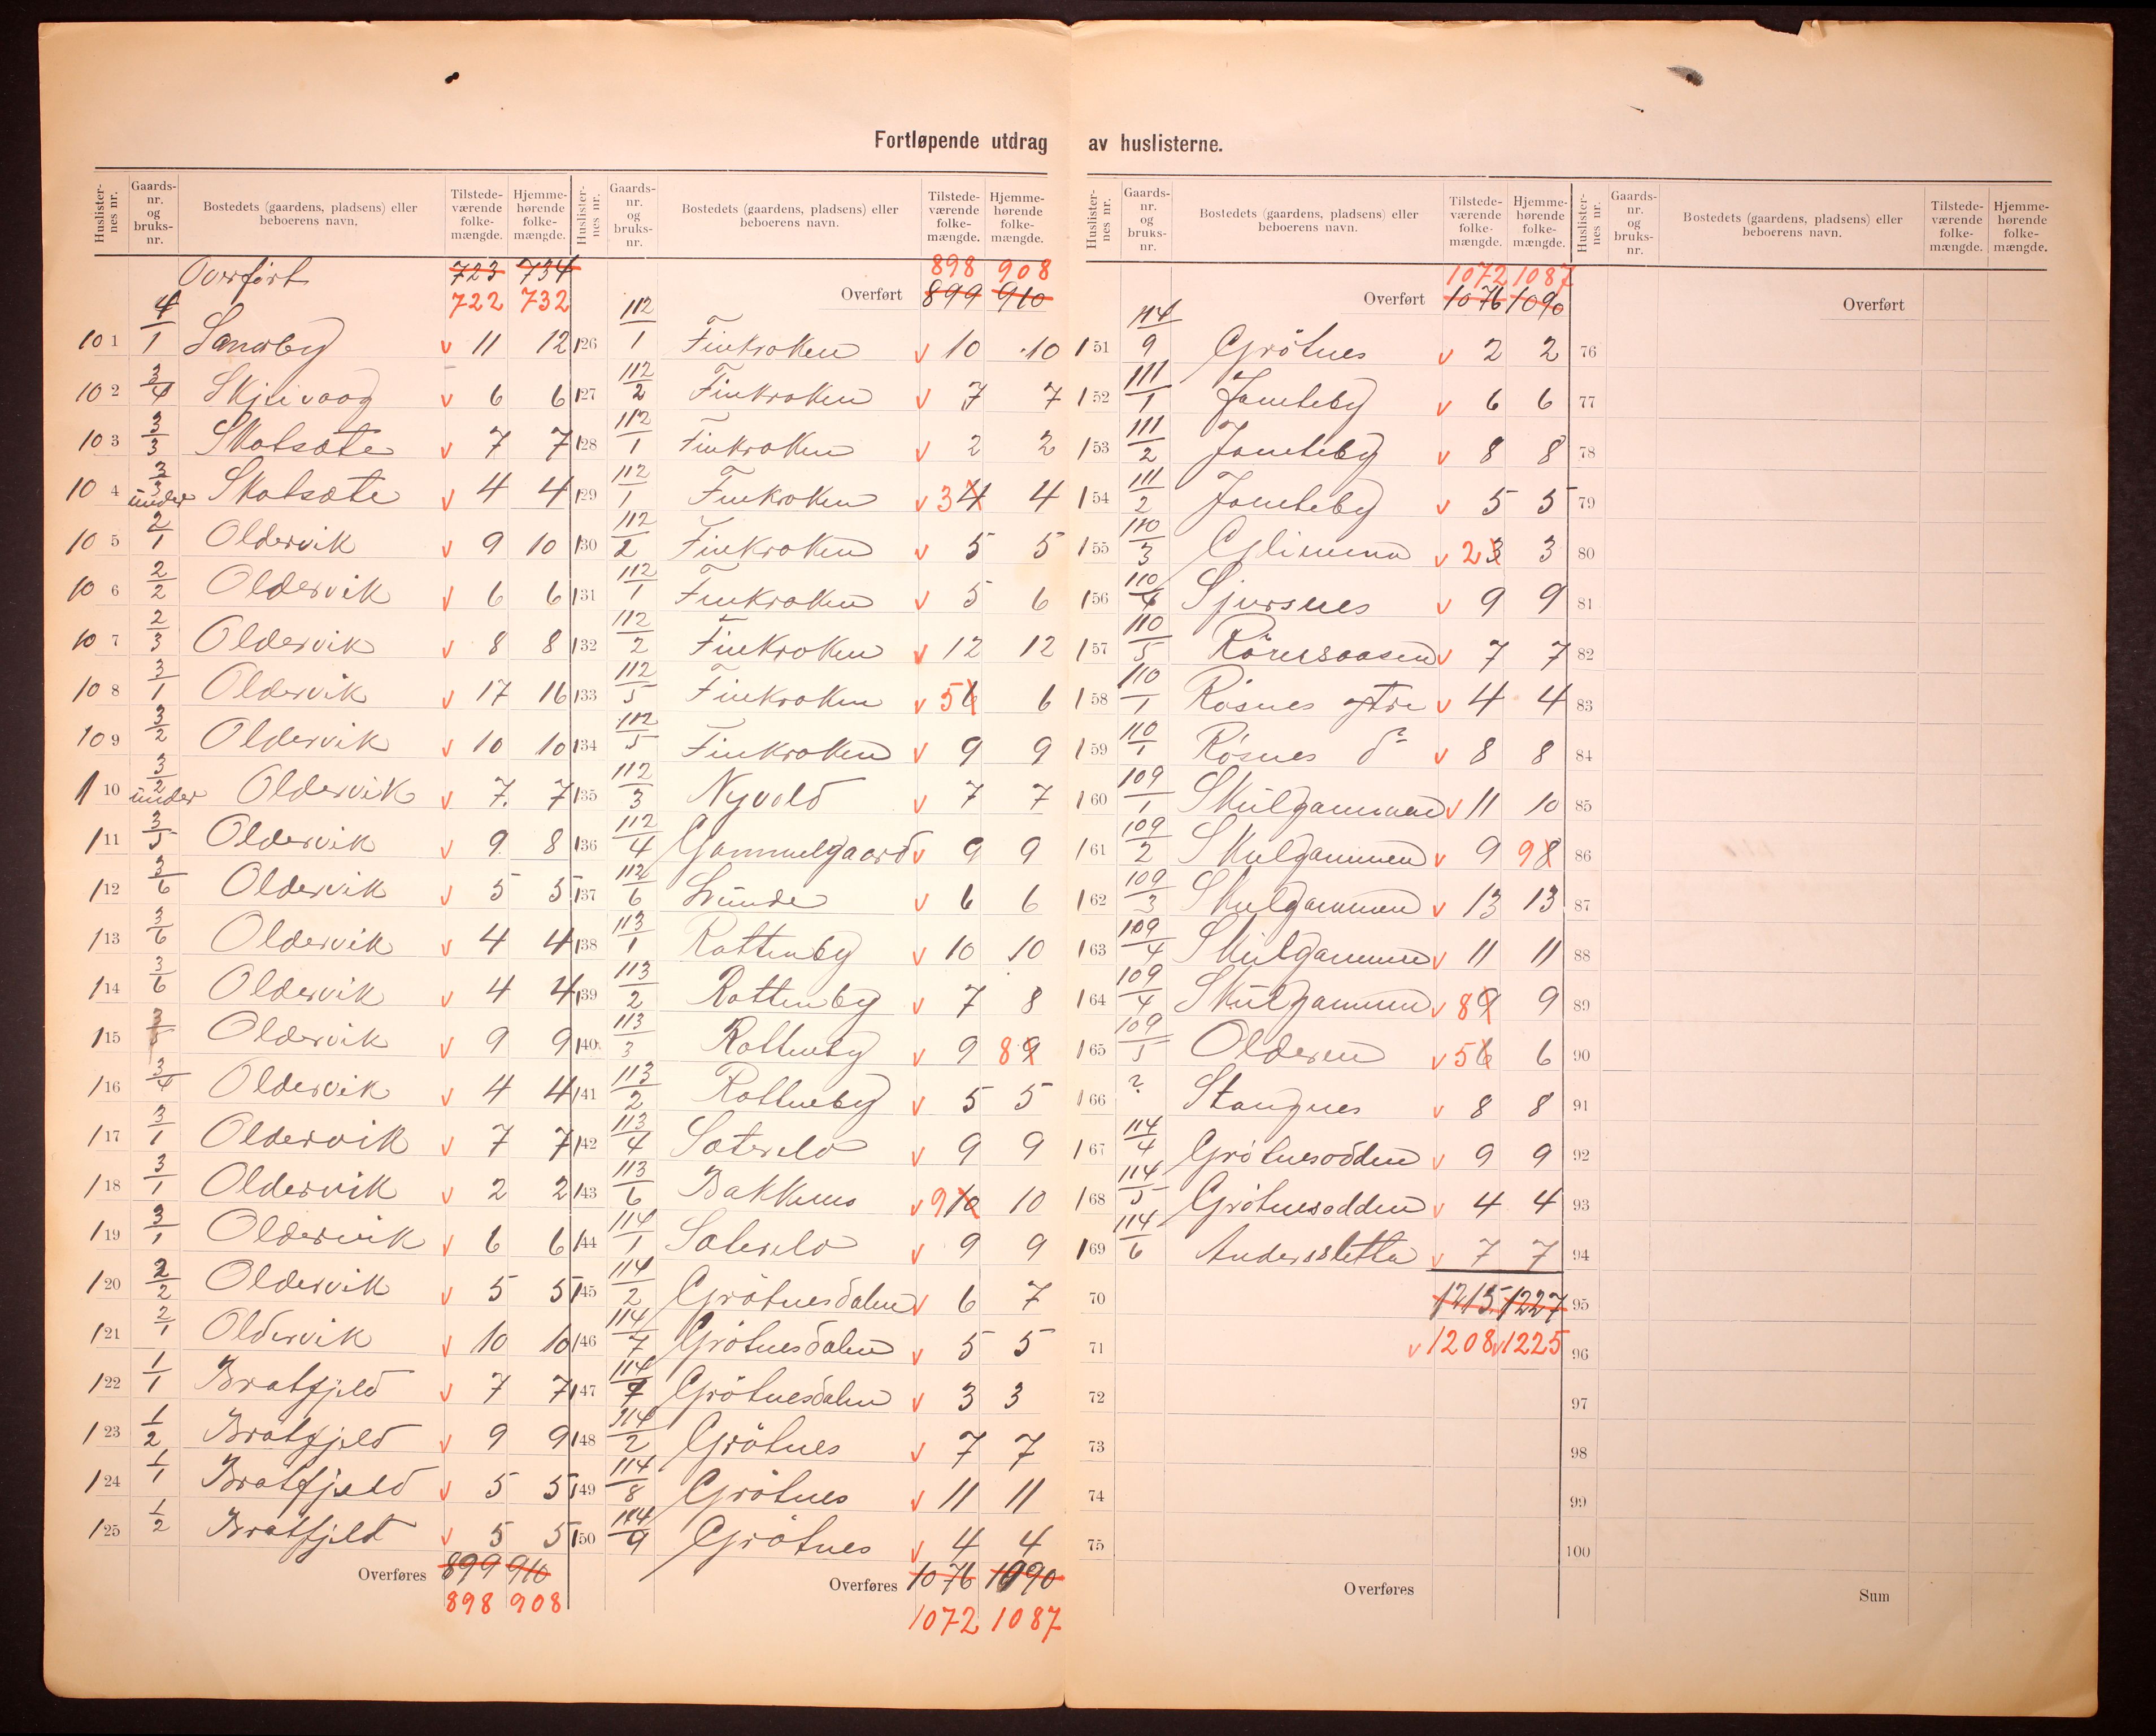 Fortløpende utdrag av huslisterne.
Huslister-nes nr. Gaards-nr. og bruks-nr. Bostedets (gaardens, pladsens) eller beboerens navn. Tilstede-værende folke-mængde. Hjemme-hørende folke-mængde.
Overført 723 734
722 732
101 4/1 Sandby v 11 12
102 3/4 Skjelvaag v 6 6
103 3/3 Skatsæte v 7 7
104 3/3 under Skatsæte v 4 4
105 2/1 Oldervik v 9 10
106 2/2 Oldervik v 6 6
107 2/3 Oldervik v 8 8
108 3/1 Oldervik v 17 16
109 3/2 Oldervik v 10 10
110 3/2 under Oldervik v 7. 7
111 3/5 Oldervik v 9 8
112 3/6 Oldervik v 5 5
113 3/6 Oldervik v 4 4
114 3/6 Oldervik v 4 4
115 3/5 Oldervik v 9 9
116 3/4 Oldervik v 4 4
117 3/1 Oldervik v 7 7
118 3/1 Oldervik v 2 2
119 3/1 Oldervik v 6 6
120 2/2 Oldervik v 5 5
121 2/1 Oldervik v 10 10
122 1/1 Bratfjeld v 7 7
123 1/2 Bratfjeld v 9 9
124 1/1 Bratfjeld v 5 5
125 1/2 Bratfjeld v 5 5
Overføres 899 910
898 908
Huslister-nes nr. Gaards-nr. og bruks-nr. Bostedets (gaardens, pladsens) eller beboerens navn. Tilstede-værende folke-mængde. Hjemme-hørende folke-mængde.
898 908
Overført 899 910
126 112/1 Finkroken v 10 10
127 112/2 Finkroken v 7 7
128 112/1 Finkroken v 2 2
129 112/1 Finkroken v 3 4 4
130 112/2 Finkroken v 5 5
131 112/1 Finkroken v 5 6
132 112/2 Finkroken v 12 12
133 112/5 Finkroken v 5 6 6
134 112/5 Finkroken v 9 9
135 112/3 Nyvold v 7 7
136 112/4 Gammelgaard v 9 9
137 112/6 Lünde v 6 6
138 113/1 Rottenby v 10 10
139 113/2 Rottenby v 7 8
140 113/3 Rottenby v 9 8 9
141 113/2 Rottenby v 5 5
142 113/4 Sæterelv v 9 9
143 113/6 Bakkemo v 9 10 10
144 114/1 Sæterelv v 9 9
145 114/2 Grötnesdalen v 6 7
146 114/7 Grötnesdalen v 5 5
147 114/7 Grötnesdalen v 3 3
148 114/2 Grötnes v 7 7
149 114/8 Grötnes v 11 11
150 114/9 Grötnes v 4 4
Overføres 1076 1090
1072 1087
Huslister-nes nr. Gaards-nr. og bruks-nr. Bostedets (gaardens, pladsens) eller beboerens navn. Tilstede-værende folke-mængde. Hjemme-hørende folke-mængde.
1072 1087
Overført 1076 1090
151 114/9 Grötnes v 2 2
152 111/1 Jamteby v 6 6
153 111/2 Jamteby v 8 8
154 111/2 Jamteby v 5 5
155 110/3 Glimma v 2 3 3
156 110/4 Sjursnes v 9 9
157 110/5 v 7 7
158 110/1 Røsnes østre v 4 4
159 110/1 Røsnes do v 8 8
160 109/1 Skülgammen v 11 10
161 109/2 Skulgammen v 9 9 8
162 109/3 Skulgammen v 13 13
163 109/4 Skülgammen v 11 11
164 109/4 Skülgammen v 8 9 9
165 109/5 Olderen v 5 6 6
166 ? Stangnes v 8 8
167 114/4 Grötnesodden v 9 9
168 114/5 Grötnesodden v 4 4
169 114/6 Anderssletta v 7 7
70 1215 1227
71 v 1208 v 1225
72
73
74
75
Overføres
Huslister-nes nr. Gaards-nr. og bruks-nr. Bostedets (gaardens, pladsens) eller beboerens navn. Tilstede-værende folke-mængde. Hjemme-hørende folke-mængde.
Overført
76
77
78
79
80
81
82
83
84
85
86
87
88
89
90
91
92
93
94
95
96
97
98
99
100
Sum